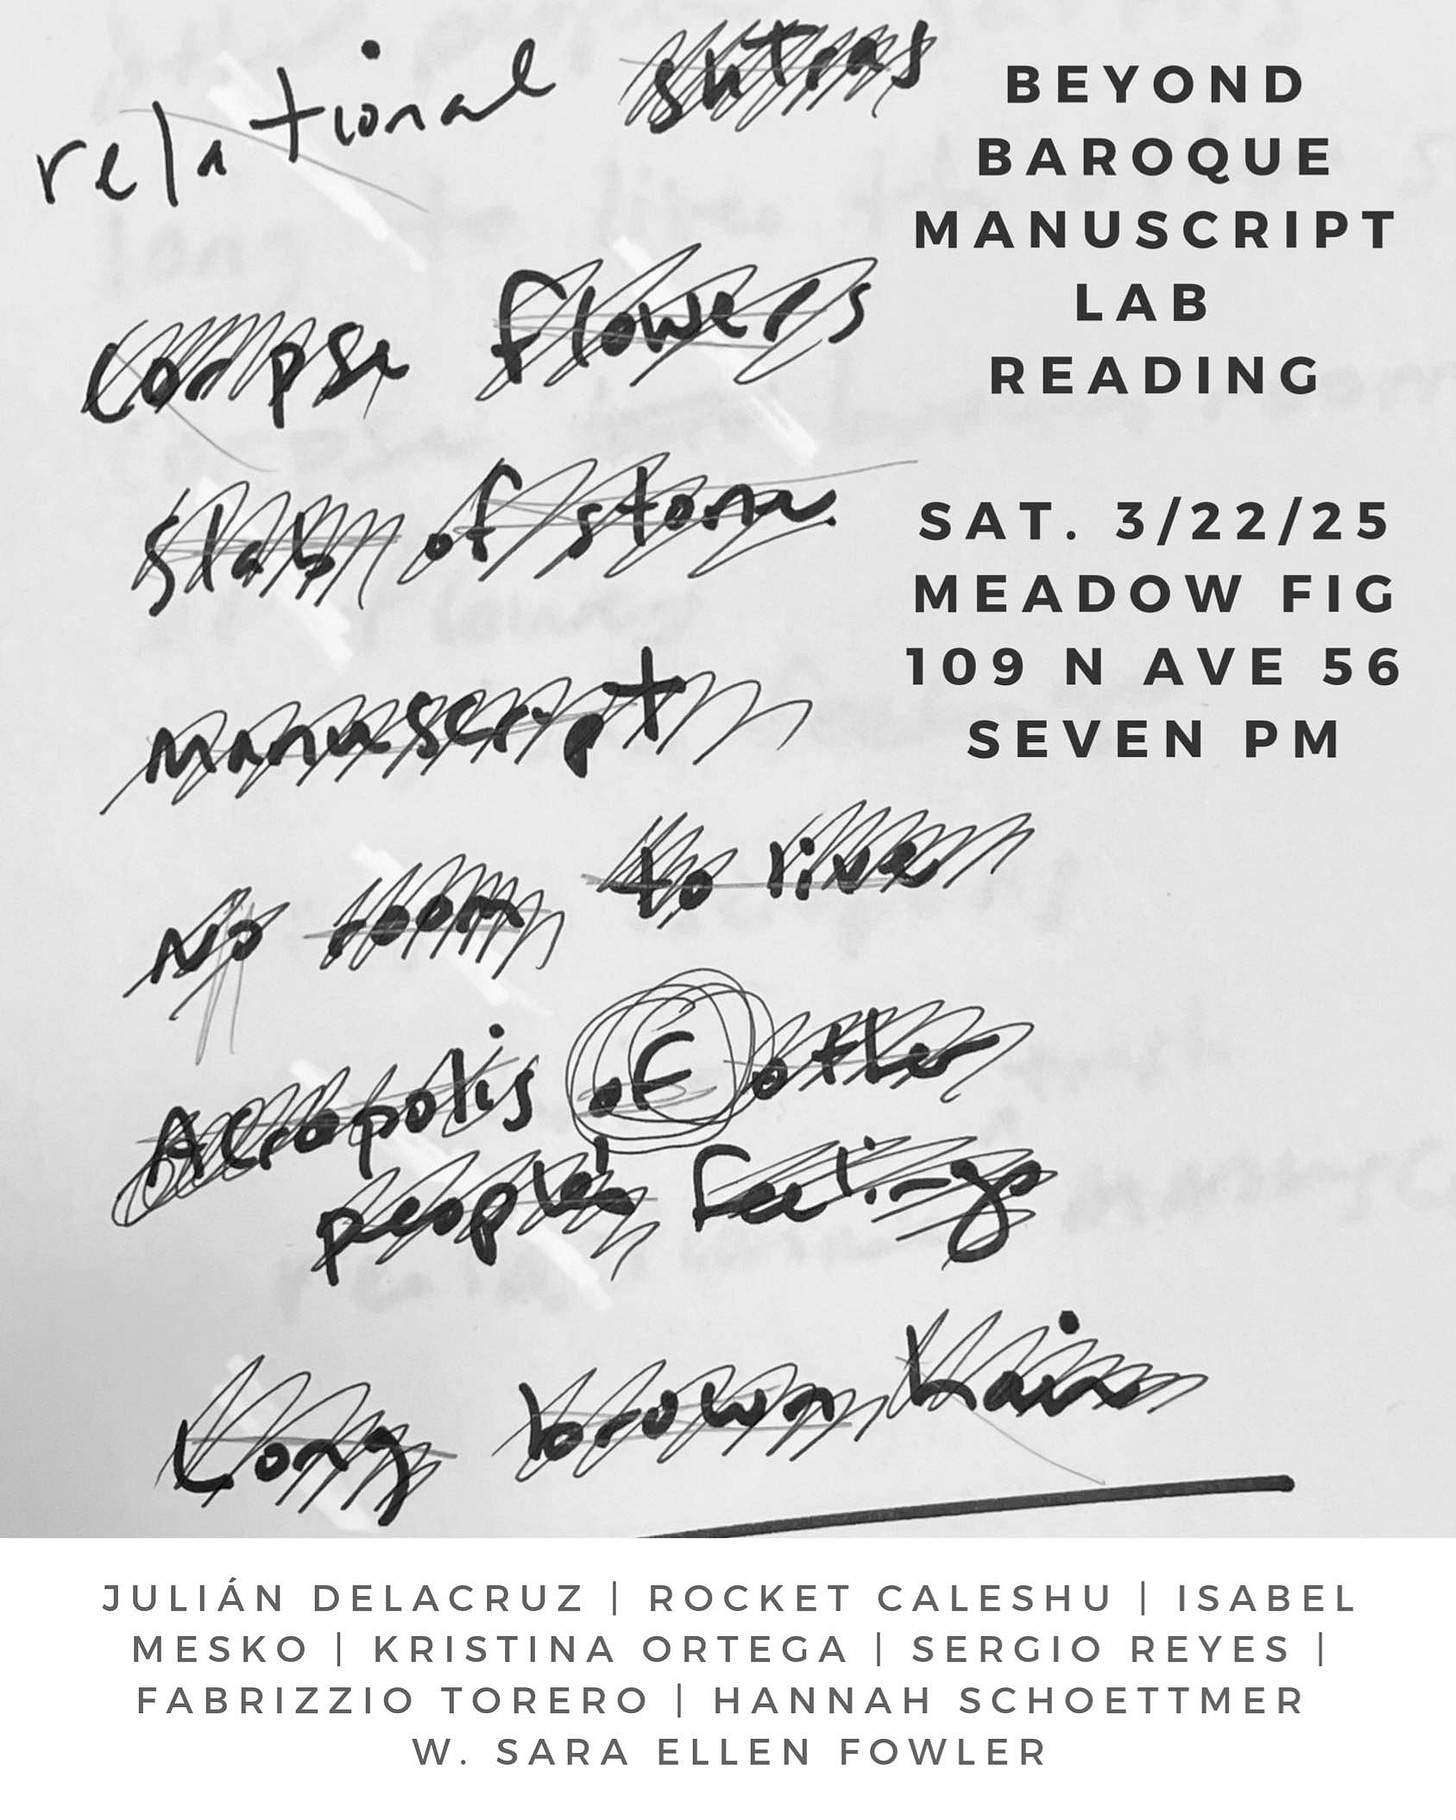 relational sutras
corpse flowers
slab of stone
manuscript
No room to
Acropolis of other
people's feelings
Long brown hair
BEYOND
BAROQUE
MANUSCRIPT
LAB
READING
SAT. 3/22/25
MEADOW FIG
109 N AVE 56
SEVEN PM
JULIÁN DELACRUZ | ROCKET CALESHU | ISABEL
MESKO | KRISTINA ORTEGA | SERGIO REYES |
FABRIZZIO TORERO | HANNAH SCHOETTMER
W. SARA ELLEN FOWLER